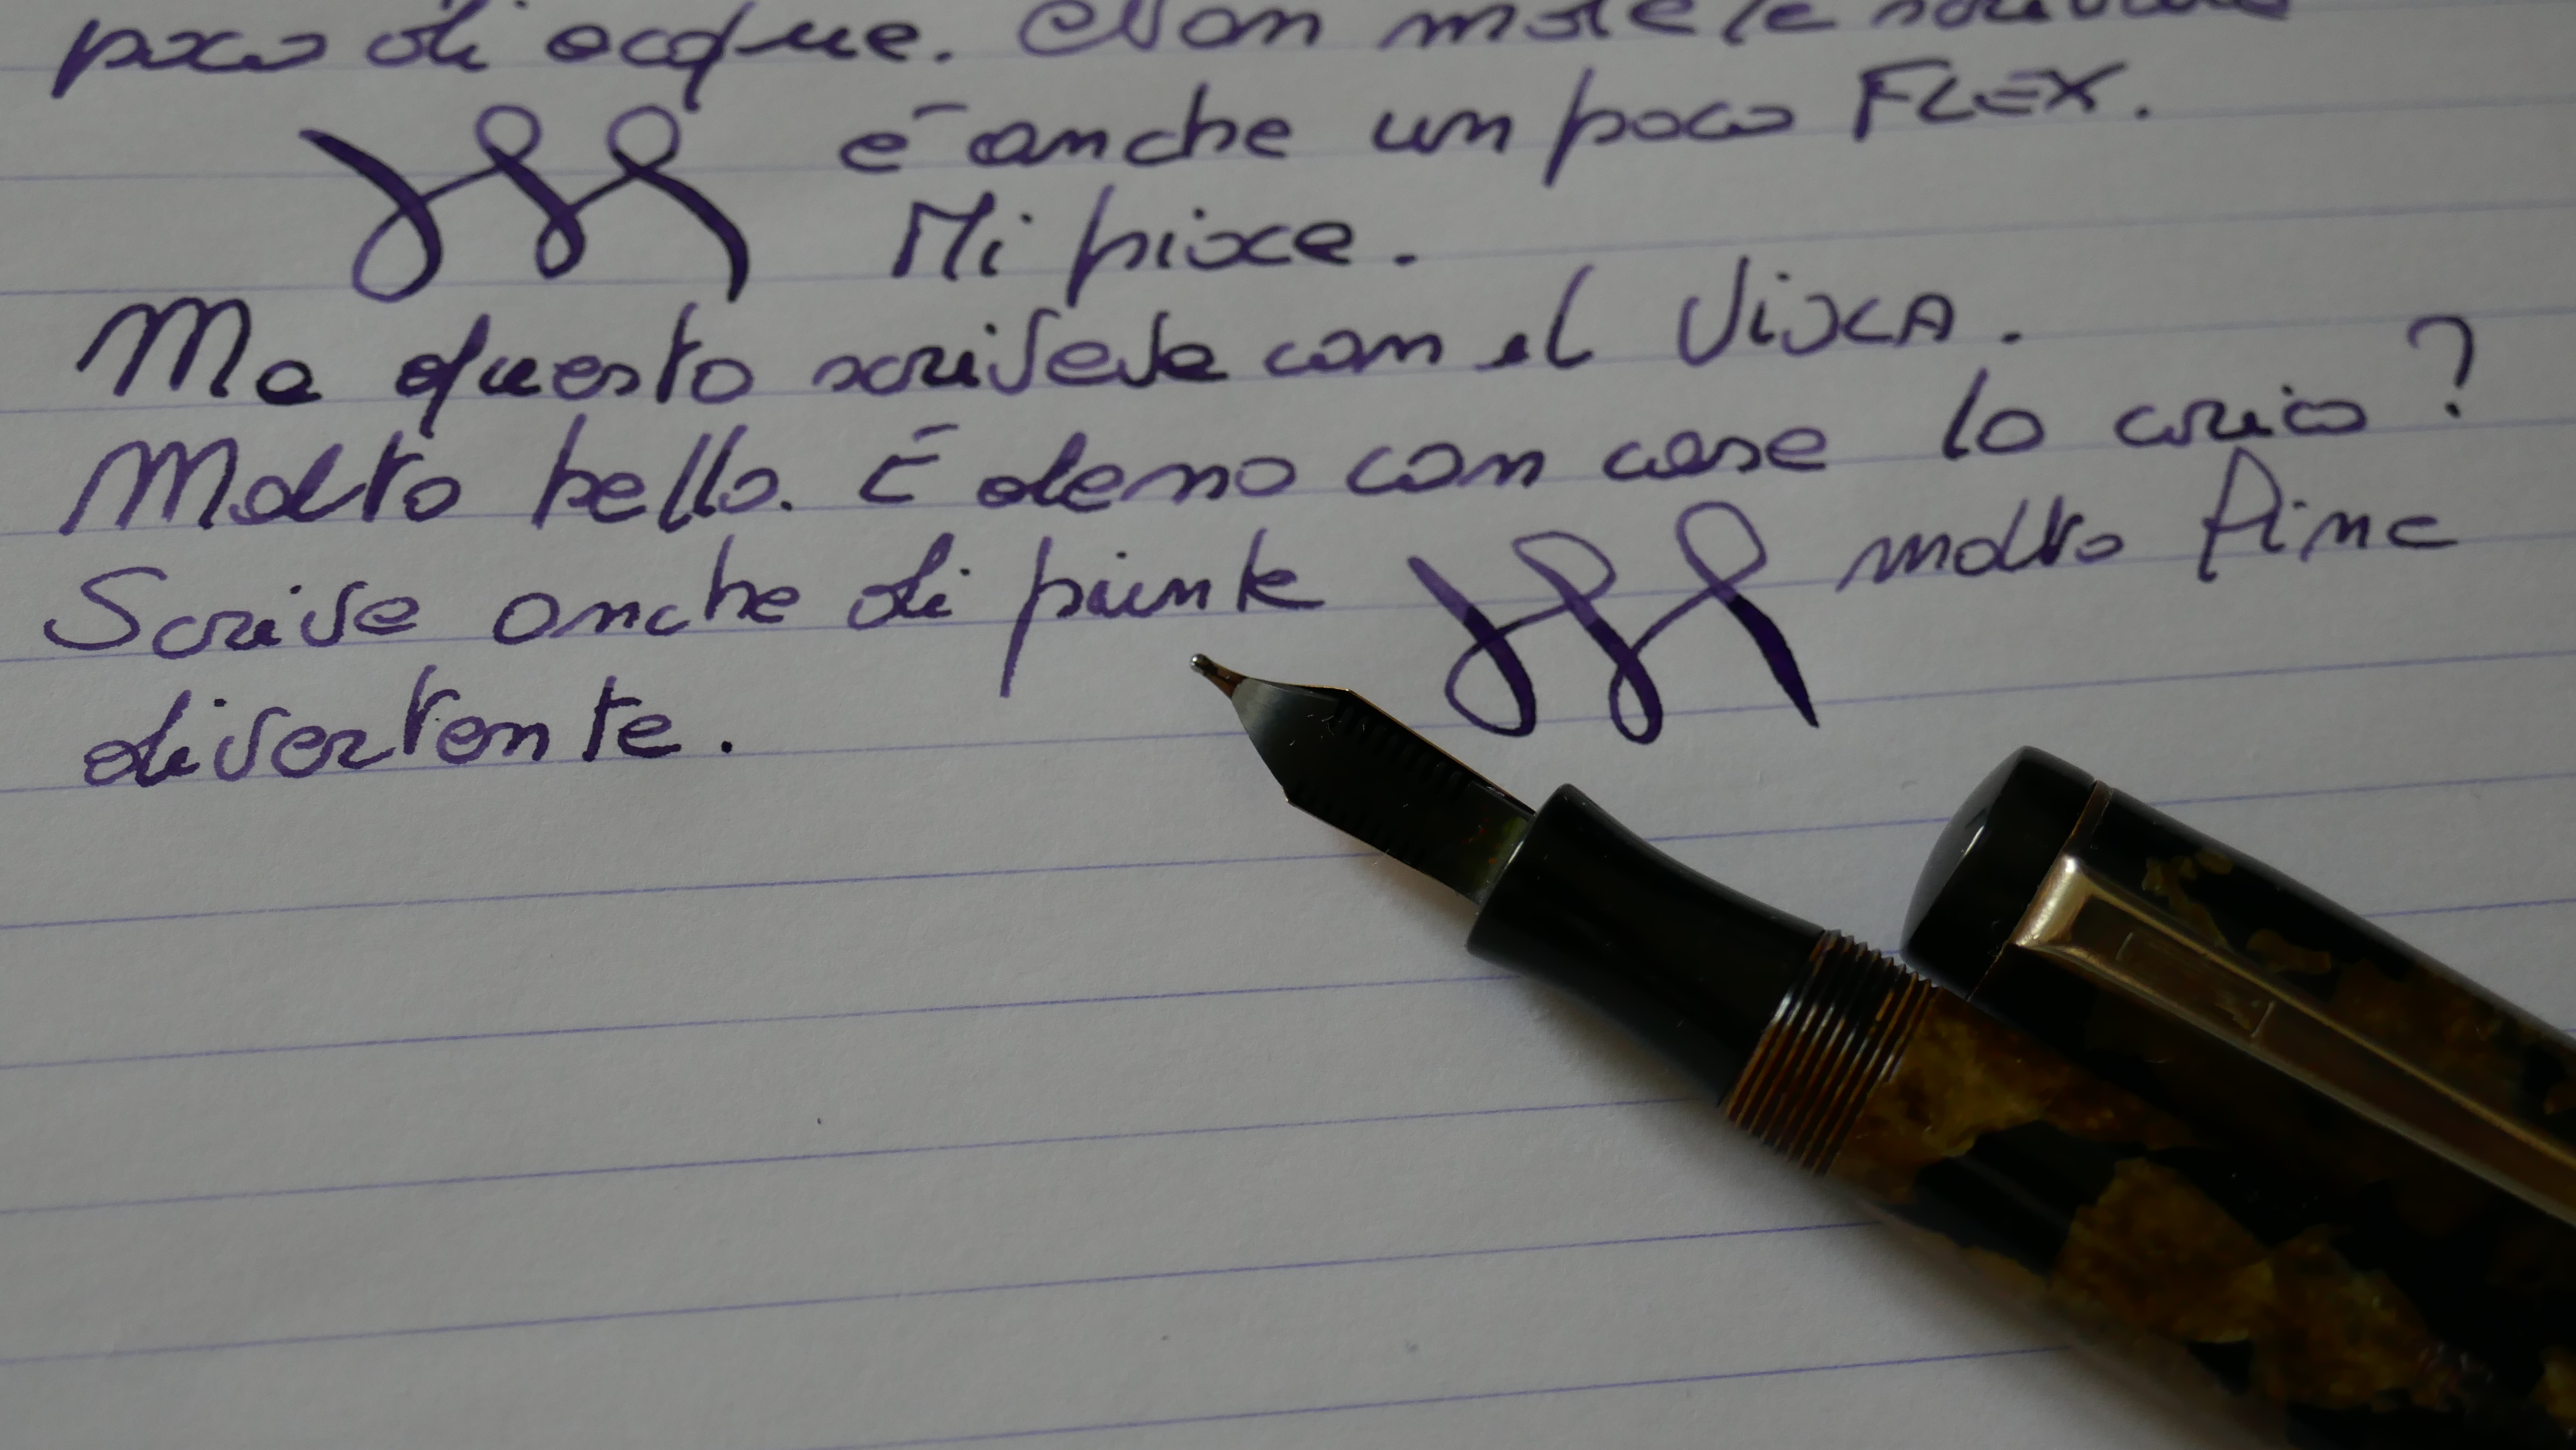 poco di acqua. Non male la scrittura
è anche un poco FLEX.
Mi piace.
Ma questo scriveva con il VISCA.
Molto bello. È demo con cosa lo carico?
Scrive anche di punta molto fine
divertente.